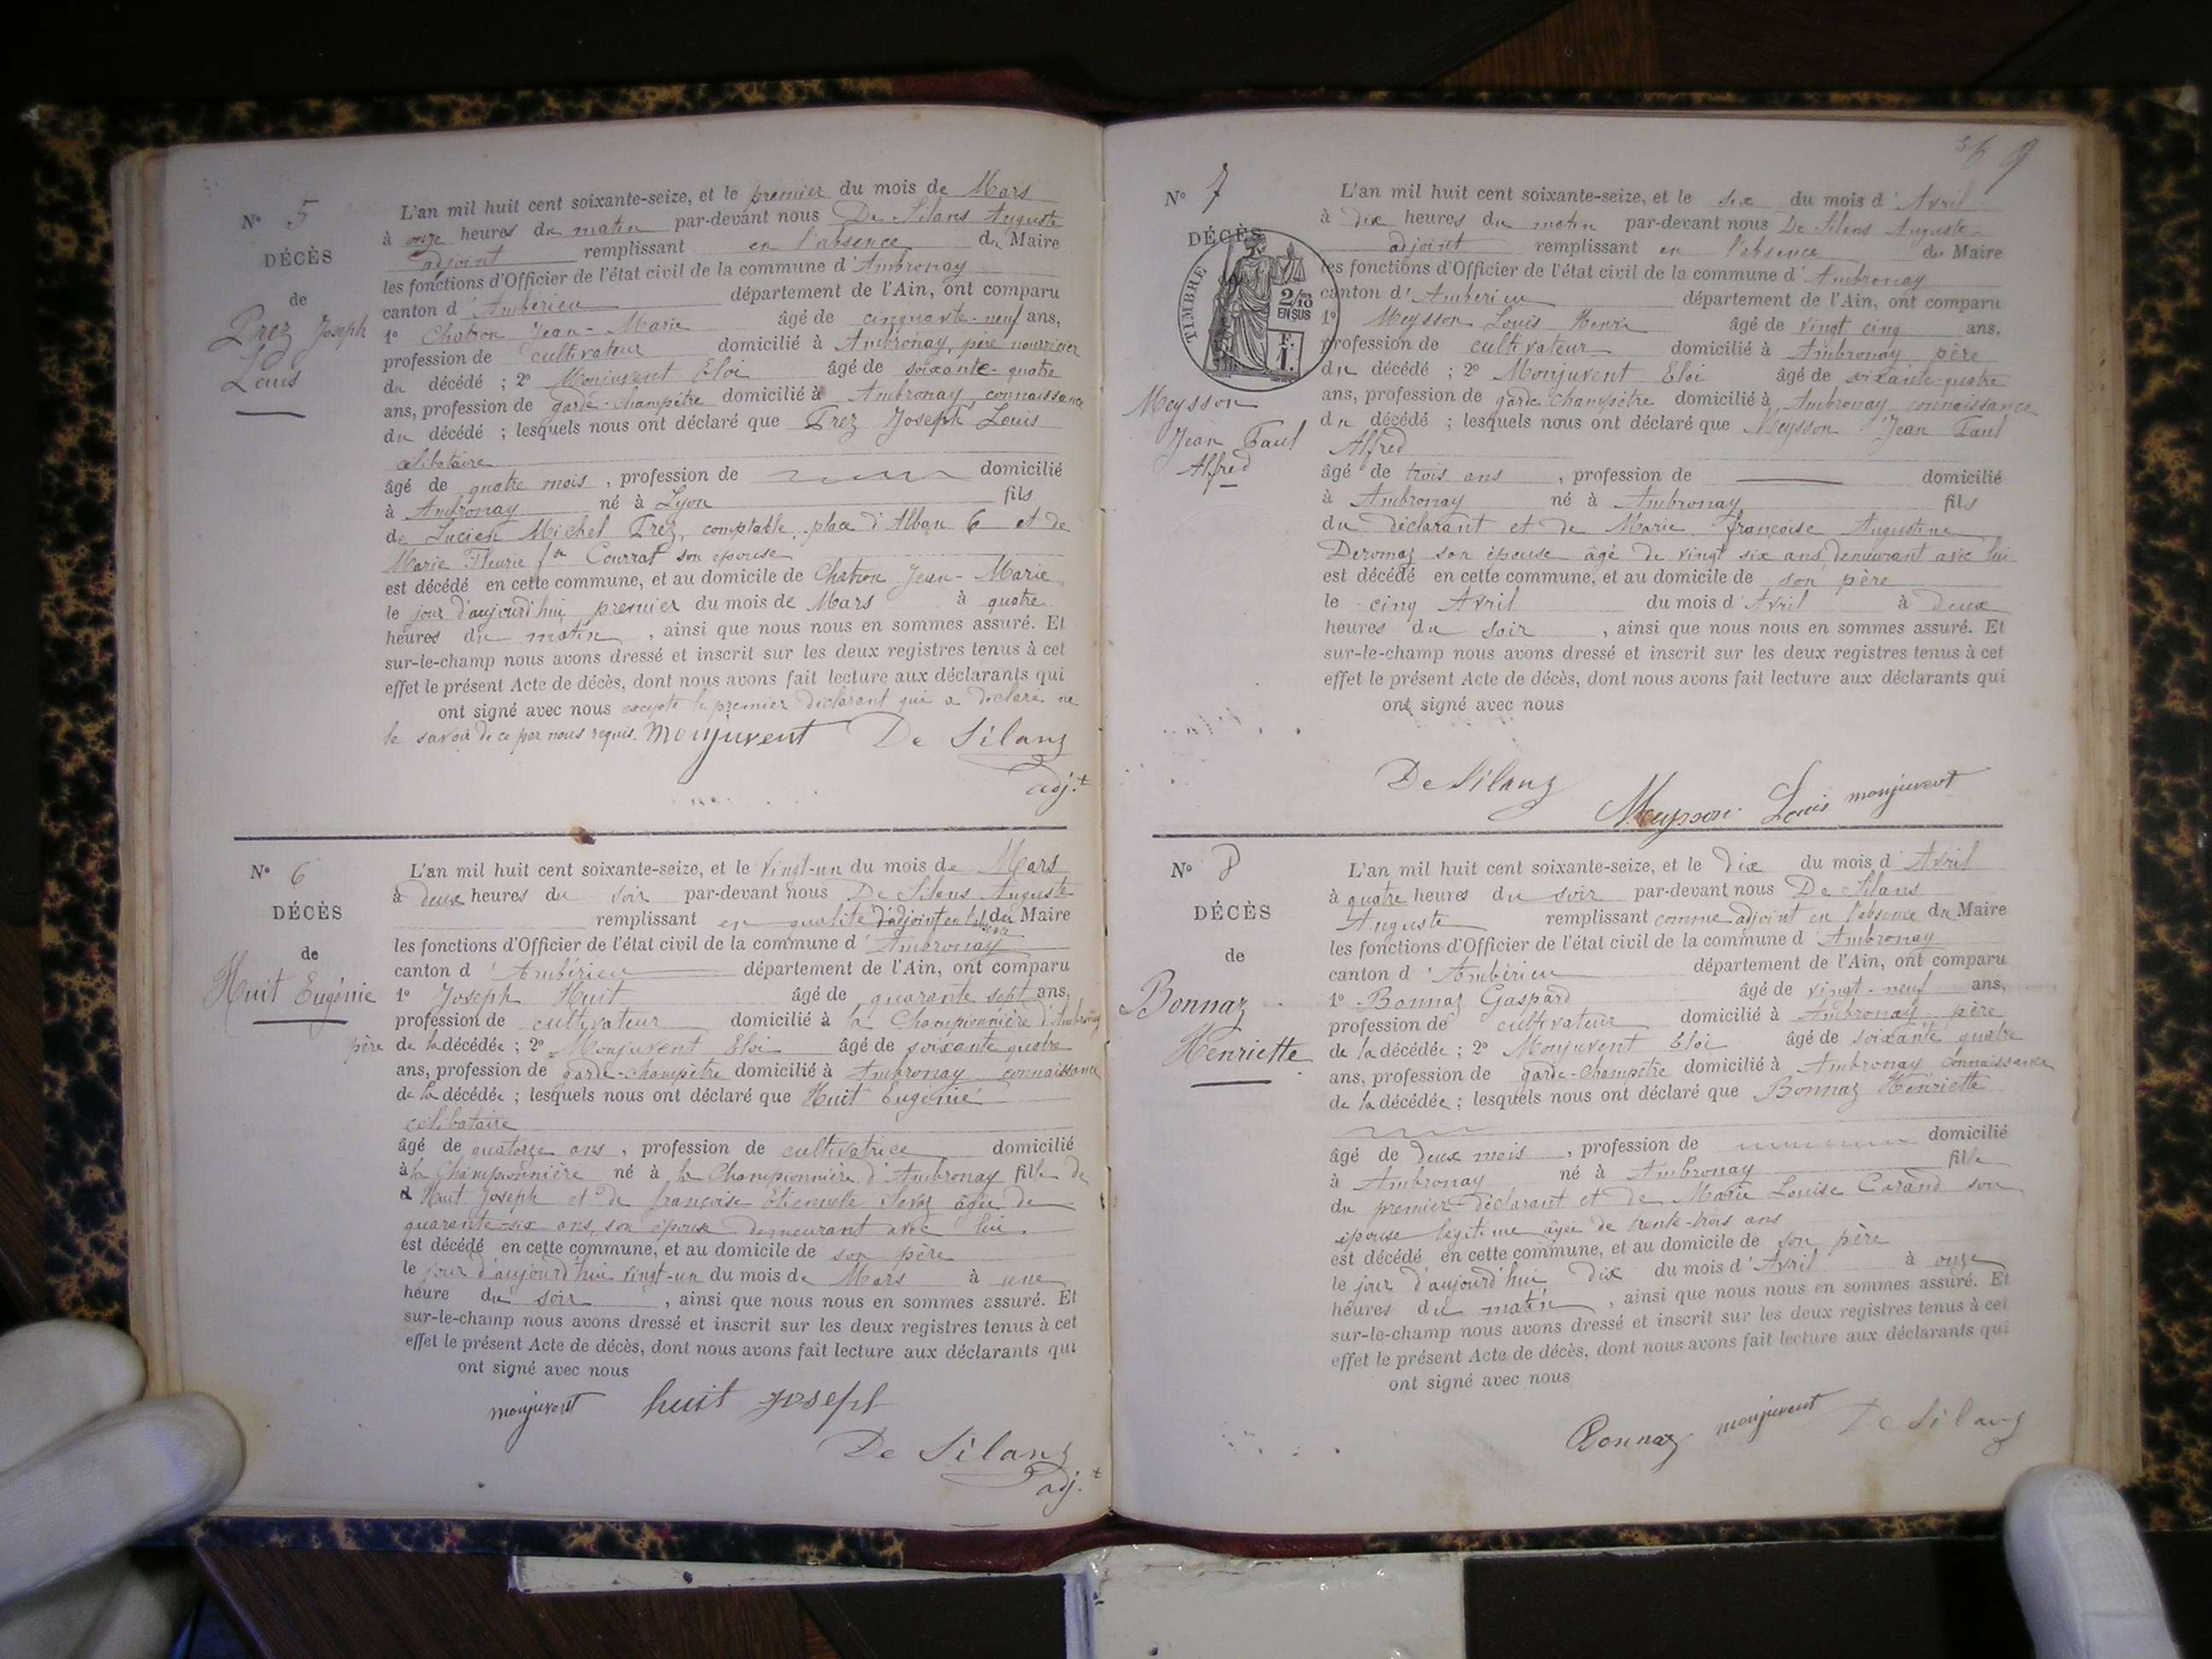 N° 5
DÉCÈS
de
Prez Joseph
Louis
L'an mil huit cent soixante-seize, et le premier du mois de Mars
à onze heures du matin par-devant nous De Silans Auguste
adjoint remplissant en l'absence du Maire
les fonctions d'Officier de l'état civil de la commune d'Ambronay
canton d'Ambérieu département de l'Ain, ont comparu
1° Chatron Jean-Marie âgé de cinquante-neuf ans,
profession de cultivateur domicilié à Ambronay, père nourricier
du décédé ; 2° Monjuvent Eloi âgé de soixante-quatre
ans, profession de garde-champêtre domicilié à Ambronay connaissance
du décédé ; lesquels nous ont déclaré que Prez Joseph Louis
célibataire
âgé de quatre mois, profession de domicilié
à Ambronay né à Lyon fils
de Lucien Michel Prez, comptable, place d'Alban 6 et de
Marie Fleurie Courrat son épouse
est décédé en cette commune, et au domicile de Chatron Jean-Marie
le jour d'aujourd'hui premier du mois de Mars à quatre
heures du matin, ainsi que nous nous en sommes assuré. Et
sur-le-champ nous avons dressé et inscrit sur les deux registres tenus à cet
effet le présent Acte de décès, dont nous avons fait lecture aux déclarants qui
ont signé avec nous excepté le premier déclarant qui a déclaré ne
le savoir de ce par nous requis. Monjuvent De Silans
adj.t
N° 6
DÉCÈS
de
Huit Eugénie
L'an mil huit cent soixante-seize, et le vingt-un du mois de Mars
à deux heures du soir par-devant nous De Silans Auguste
remplissant en qualité d'adjoint en l'absence du Maire
les fonctions d'Officier de l'état civil de la commune d'Ambronay
canton d'Ambérieu département de l'Ain, ont comparu
1° Joseph Huit âgé de quarante sept ans,
profession de cultivateur domicilié à la Championnière d'Ambronay
père de la décédée ; 2° Monjuvent Eloi âgé de soixante quatre
ans, profession de garde-champêtre domicilié à Ambronay connaissance
de la décédée ; lesquels nous ont déclaré que Huit Eugénie
célibataire
âgé de quatorze ans, profession de cultivatrice domicilié
à la Championnière né à la Championnière d'Ambronay fille de
Huit Joseph et de françoise Etiennette âgée de
quarante-six ans, son épouse demeurant avec lui.
est décédé en cette commune, et au domicile de son père
le jour d'aujourd'hui vingt-un du mois de Mars à une
heure du soir, ainsi que nous nous en sommes assuré. Et
sur-le-champ nous avons dressé et inscrit sur les deux registres tenus à cet
effet le présent Acte de décès, dont nous avons fait lecture aux déclarants qui
ont signé avec nous
monjuvent huit joseph
De Silans
adj.t
36 9
N° 7
DÉCÈS
TIMBRE
2/10
EN SUS
F.
1.
Meysson
Jean Paul
Alfred
L'an mil huit cent soixante-seize, et le six du mois d'Avril
à dix heures du matin par-devant nous De Silans Auguste
adjoint remplissant en l'absence du Maire
les fonctions d'Officier de l'état civil de la commune d'Ambronay
canton d'Ambérieu département de l'Ain, ont comparu
1° Meysson Louis Henri âgé de vingt cinq ans,
profession de cultivateur domicilié à Ambronay père
du décédé ; 2° Monjuvent Eloi âgé de soixante-quatre
ans, profession de garde champêtre domicilié à Ambronay connaissance
du décédé ; lesquels nous ont déclaré que Meysson Jean Paul
Alfred
âgé de trois ans, profession de domicilié
à Ambronay né à Ambronay fils
du déclarant et de Marie françoise Augustine
Deromaz son épouse âgé de vingt six ans demeurant avec lui
est décédé en cette commune, et au domicile de son père
le cinq Avril du mois d'Avril à deux
heures du soir, ainsi que nous nous en sommes assuré. Et
sur-le-champ nous avons dressé et inscrit sur les deux registres tenus à cet
effet le présent Acte de décès, dont nous avons fait lecture aux déclarants qui
ont signé avec nous
De Silans Meysson Louis monjuvent
N° 8
DÉCÈS
de
Bonnaz
Henriette
L'an mil huit cent soixante-seize, et le dix du mois d'Avril
à quatre heures du soir par-devant nous De Silans
Auguste remplissant comme adjoint en l'absence du Maire
les fonctions d'Officier de l'état civil de la commune d'Ambronay
canton d'Ambérieu département de l'Ain, ont comparu
1° Bonnaz Gaspard âgé de vingt-neuf ans,
profession de cultivateur domicilié à Ambronay père
de la décédée ; 2° Monjuvent Eloi âgé de soixante quatre
ans, profession de garde-champêtre domicilié à Ambronay connaissance
de la décédée ; lesquels nous ont déclaré que Bonnaz Henriette
âgé de deux mois, profession de domicilié
à Ambronay né à Ambronay fille
du premier déclarant et de Marie Louise Carand son
épouse légitime âgée de trente-trois ans
est décédé en cette commune, et au domicile de son père
le jour d'aujourd'hui dix du mois d'Avril à onze
heures du matin, ainsi que nous nous en sommes assuré. Et
sur-le-champ nous avons dressé et inscrit sur les deux registres tenus à cet
effet le présent Acte de décès, dont nous avons fait lecture aux déclarants qui
ont signé avec nous
Bonnaz monjuvent De Silans